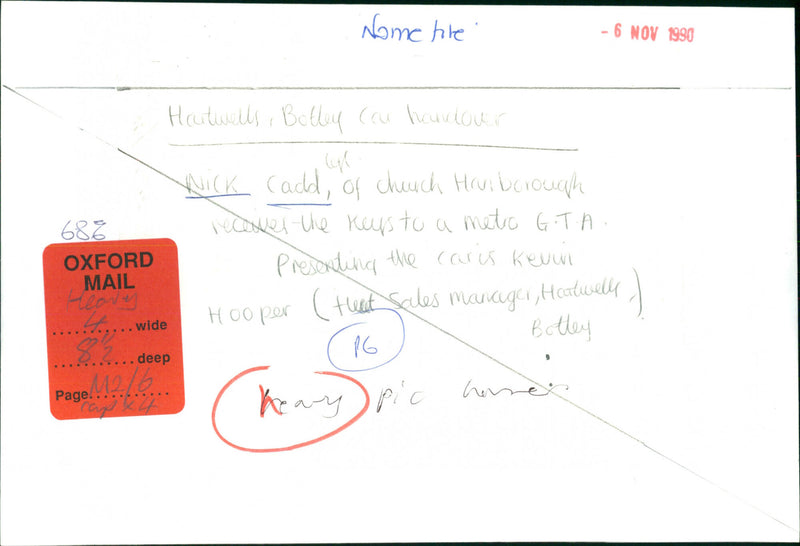 Name file
- 6 NOV 1990
Hartwells, Botley car handover
left
Nick Cadd, of church Hanborough
receives the keys to a metro G.T.A.
Presenting the car is Kevin
Hooper (Fleet Sales manager, Hartwells,)
Botley
686
OXFORD
MAIL
Heavy
4 wide
8½ deep
Page M2/6
caps x 4
16
heavy pic